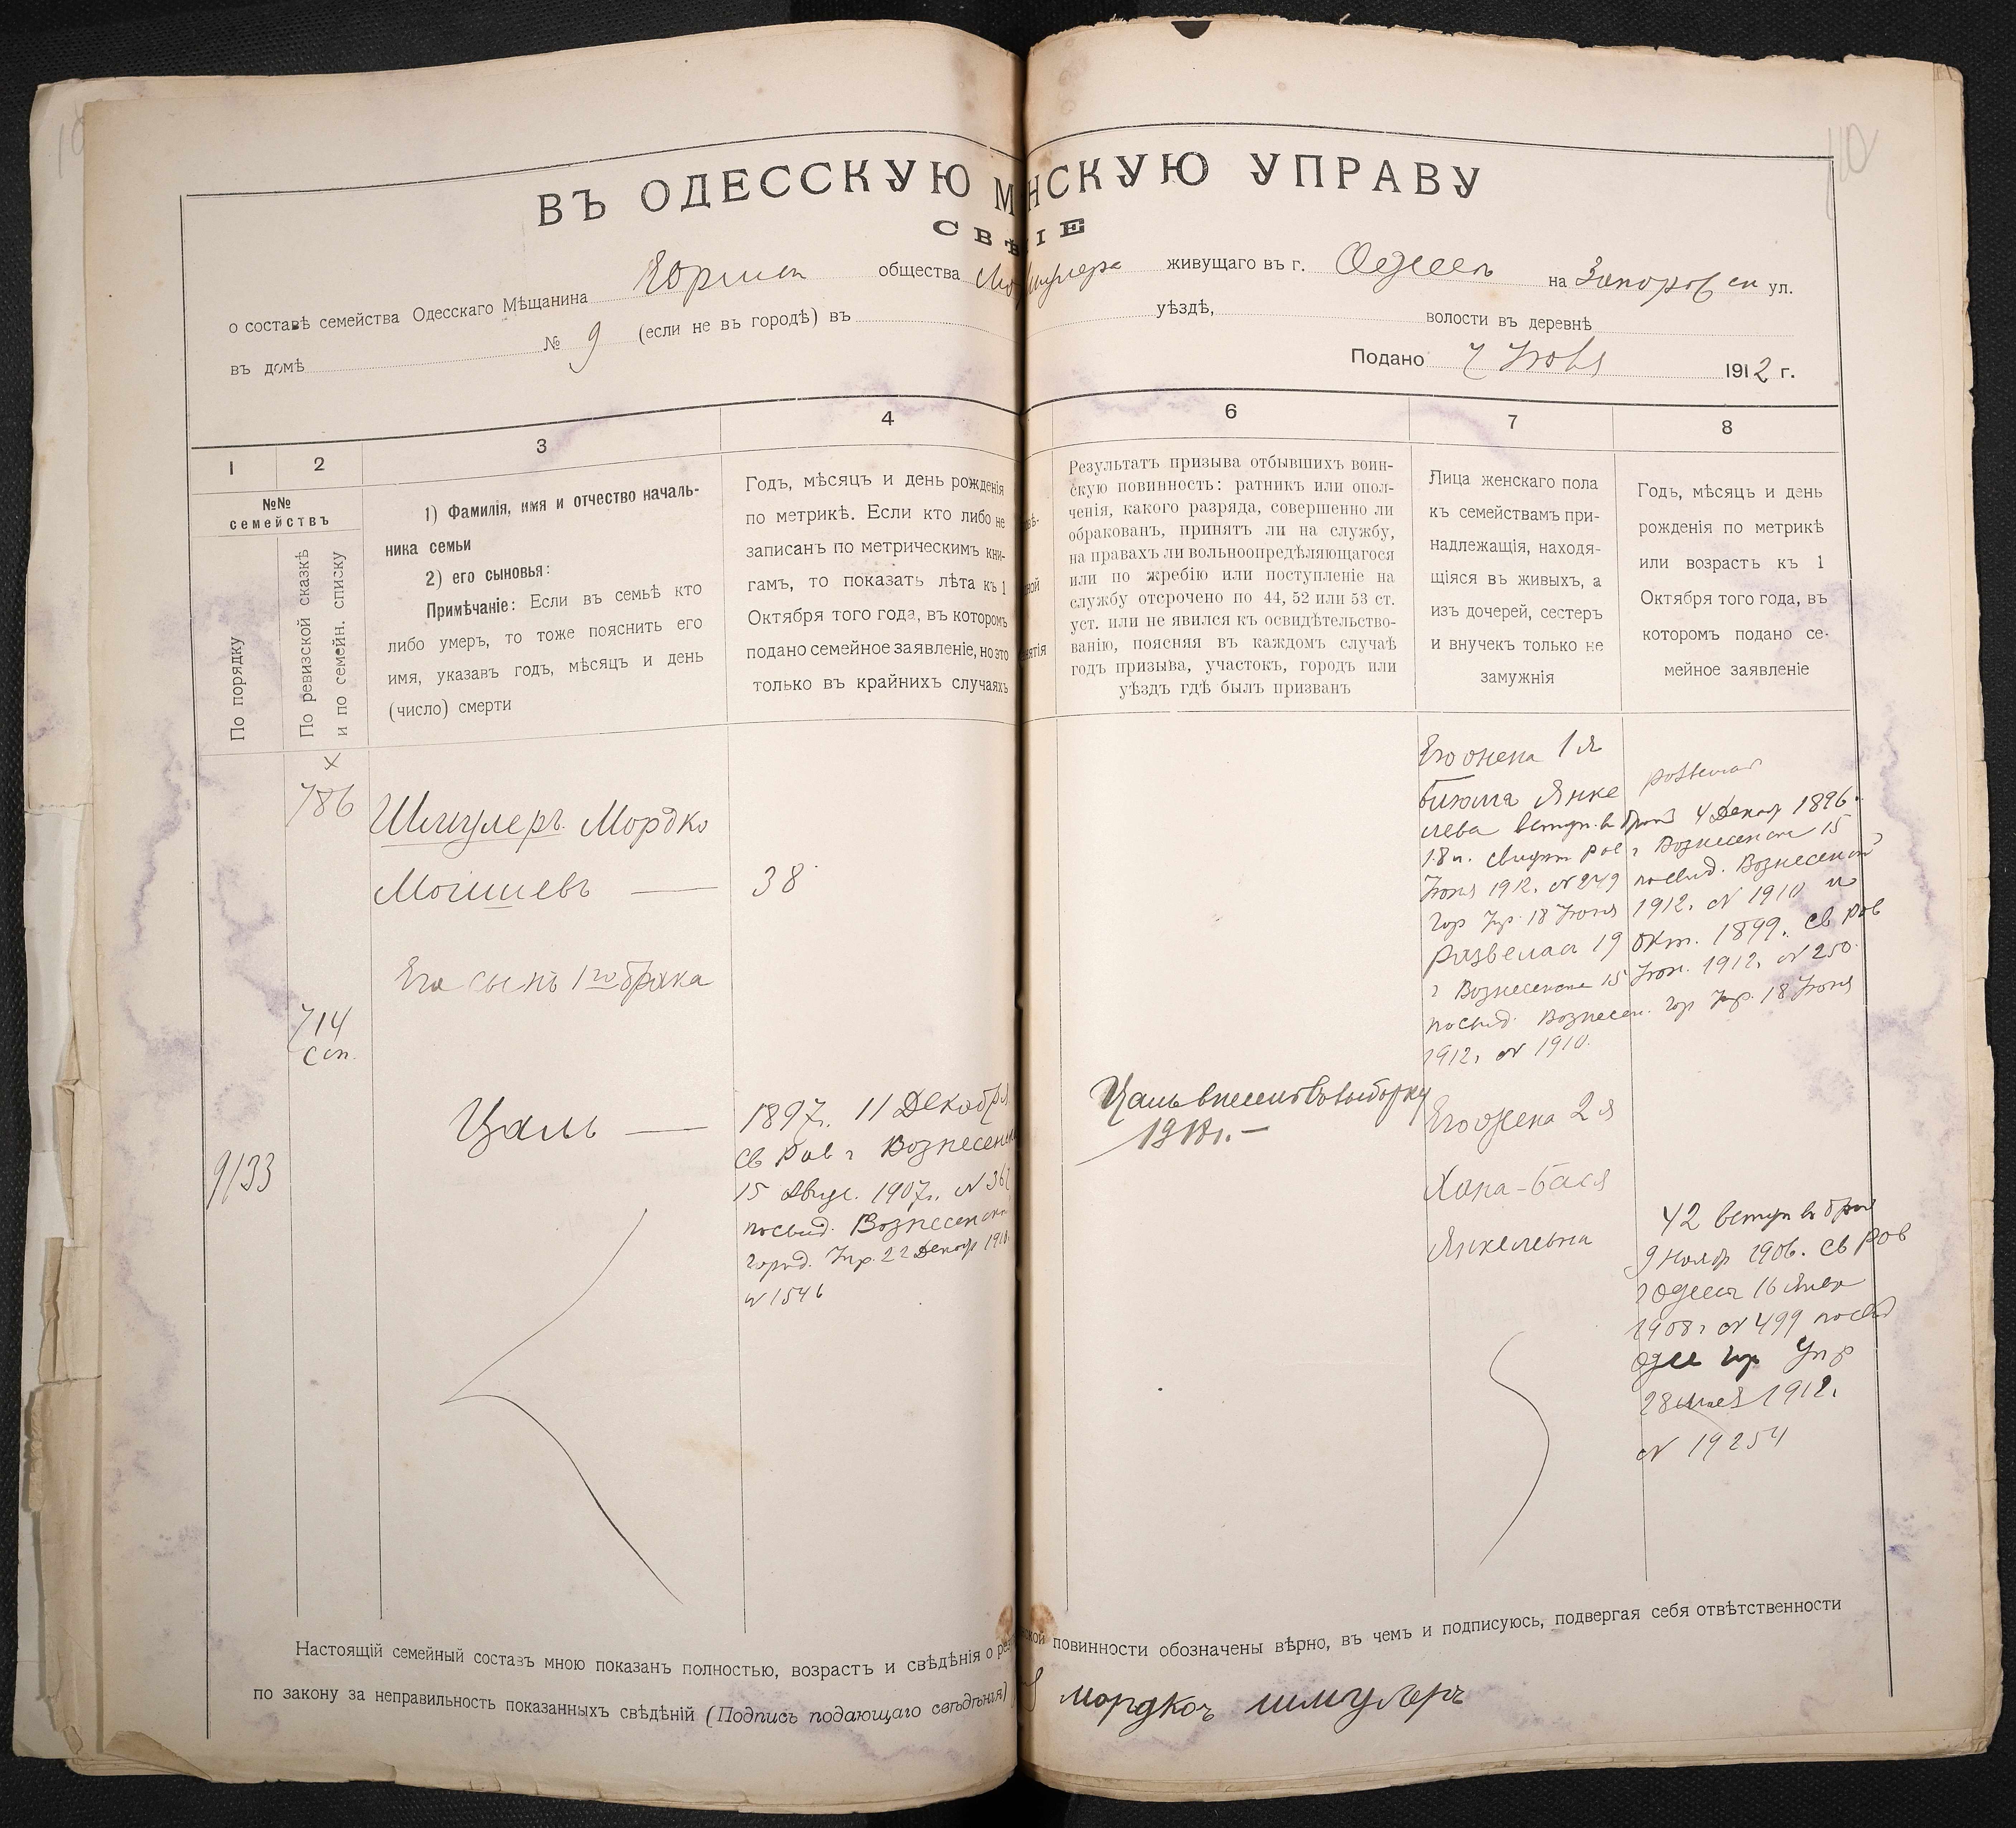 110
ВЪ ОДЕССКУЮ М НСКУЮ УПРАВУ
СВѢ ІЕ
о составѣ семейства Одесскаго Мѣщанина общества живущаго въ г. Одессѣ на ул.
въ домѣ № 9 (если не въ городѣ) въ уѣздѣ, волости въ деревнѣ
Подано 1912 г.
1
2
3
4
6
7
8
№№
семействъ
По порядку
По ревизской сказкѣ
и по семейн. списку
1) Фамилія, имя и отчество началь-
ника семьи
2) его сыновья:
Примѣчаніе: Если въ семьѣ кто
либо умеръ, то тоже пояснить его
имя, указавъ годъ, мѣсяцъ и день
(число) смерти
Годъ, мѣсяцъ и день рожденія
по метрикѣ. Если кто либо не
записанъ по метрическимъ кни-
гамъ, то показать лѣта къ 1
Октября того года, въ которомъ
подано семейное заявленіе, но это
только въ крайнихъ случаяхъ
Результатъ призыва отбывшихъ воин-
скую повинность: ратникъ или опол-
ченія, какого разряда, совершенно ли
обракованъ, принятъ ли на службу,
на правахъ ли вольноопредѣляющагося
или по жребію или поступленіе на
службу отсрочено по 44, 52 или 53 ст.
уст. или не явился къ освидѣтельство-
ванію, поясняя въ каждомъ случаѣ
годъ призыва, участокъ, городъ или
уѣздъ гдѣ былъ призванъ
Лица женскаго пола
къ семействамъ при-
надлежащія, находя-
щіяся въ живыхъ, а
изъ дочерей, сестеръ
и внучекъ только не
замужнія
Годъ, мѣсяцъ и день
рожденія по метрикѣ
или возрастъ къ 1
Октября того года, въ
которомъ подано се-
мейное заявленіе
786
Шмулеръ Мордко
Мошиевъ — 38
Его сынъ 1го брака
714
9/33
Цаль —
1897г. 11 Декабря
св Рав г Вознесенска
15 Авгус. 1907г. №
посвид. Вознесенск
Город. Упр. 22 Декаб
№ 1546
Цаль внесенъ въ выборку
Его жена 1я
Янке
лева вступ. в бракъ 4 Декаб 1896г.
г Вознесенске 15
Июня 1912. № 249 посвид. Вознесенской
Гор Упр 18 Июня 1912. № 1910 и
развелась 19 окт. 1899. св Рав
г Вознесенске 15 Июн. 1912. № 250
посвид. Вознесен. гор Упр. 18 Июня
1912. № 1910.
Его жена 2я
Хана-Бася
Янкелевна
42 вступ в брак
9 Нояб 1906. св Рав
г Одессы 16 Янва
1908 г № 499 посвид
Одес гор Упр
28 мая 1912.
№ 19254
Настоящій семейный составъ мною показанъ полностью, возрастъ и свѣдѣнія о ской повинности обозначены вѣрно, въ чемъ и подписуюсь, подвергая себя отвѣтственности
по закону за неправильность показанныхъ свѣдѣній (Подпись подающаго свѣдѣнія) мордкоъ шмулеръ